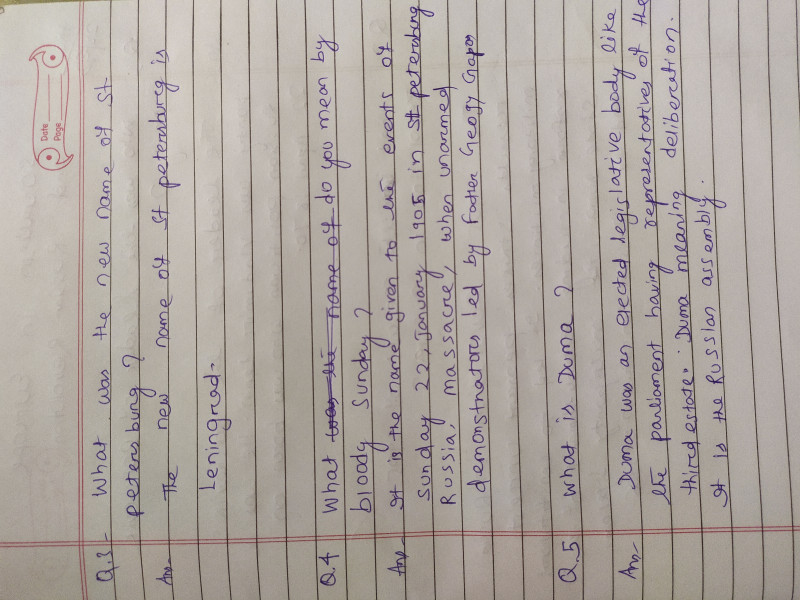 Date
Page
Q.3- What was the new name of St
petersburg ?
Ans- The new name of St petersburg is
Leningrad.
Q.4 What was the name of do you mean by
bloody Sunday ?
Ans- It is the name given to the events of
Sunday 22, January 1905 in St petersburg
Russia, massacre, when unarmed
demonstrators led by Father Geogy Gapas
Q.5 What is Duma ?
Ans- Duma was an elected legislative body like
the parliament having representatives of the
third estate. Duma meaning deliberation.
It is the Russian assembly.